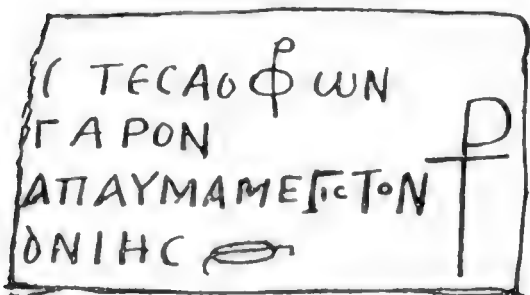 ( ΤΕCΑΟΦΡ ωΝ
ΓΑΡΟΝ
ΑΠΑΥΜΑΜΕΓΙCΤΟΝ
δΝΙΗC
⳨